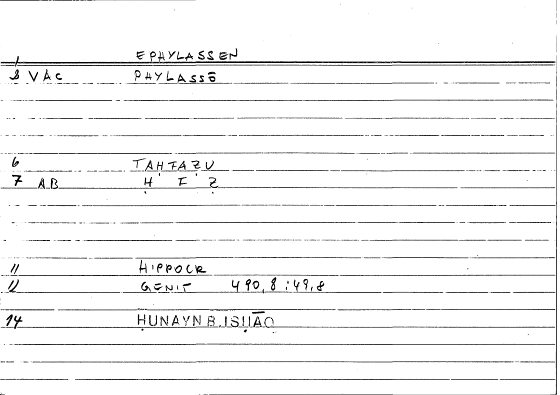 1 EPHYLASSEN
2 VAC PHYLASSŌ
6 TAḤFAẒU
7 AB Ḥ F Ẓ
11 HIPPOCR
12 GENIT 490,8:49,8
14 ḤUNAYN B. ISḤĀQ